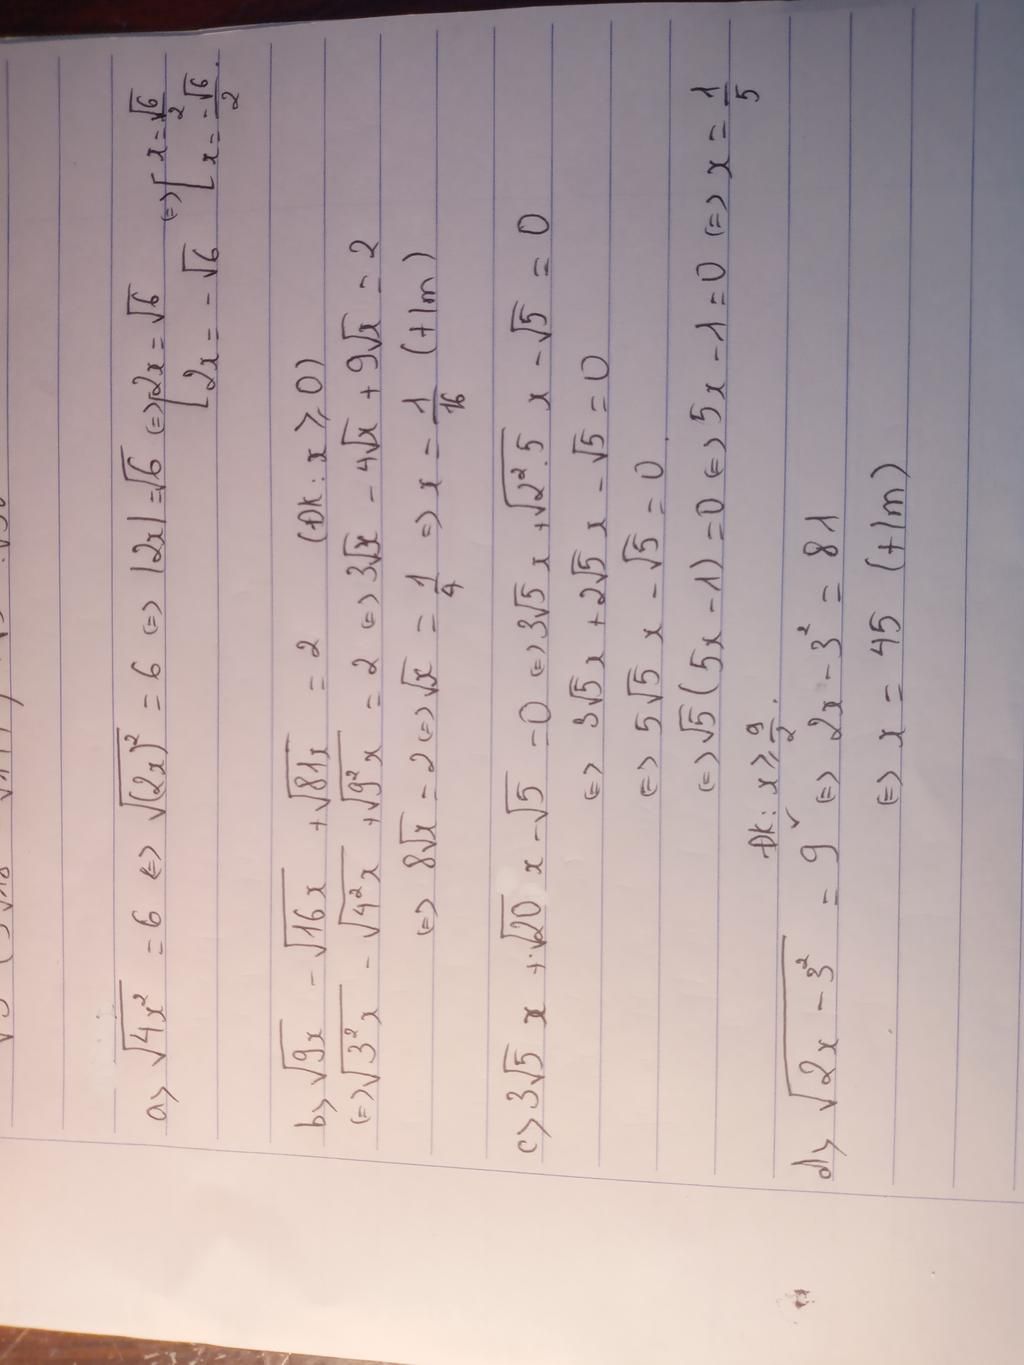 a> √(4x²) = 6 <=> √((2x)²) = 6 <=> |2x| = √6 <=> [2x = √6 <=> [x = √6/2
[2x = -√6 [x = -√6/2.
b> √(9x) - √(16x) + √(81x) = 2 (ĐK: x ⩾ 0)
<=> √(3²x) - √(4²x) + √(9²x) = 2 <=> 3√x - 4√x + 9√x = 2
<=> 8√x = 2 <=> √x = 1/4 => x = 1/16 (t/m)
c> 3√5 x + √20 x - √5 = 0 <=> 3√5 x + √(2².5) x - √5 = 0
<=> 3√5 x + 2√5 x - √5 = 0
<=> 5√5 x - √5 = 0
<=> √5 (5x - 1) = 0 <=> 5x - 1 = 0 <=> x = 1/5
ĐK: x ⩾ 9/2.
d> √(2x - 3²) = 9 <=> 2x - 3² = 81
<=> x = 45 (t/m)